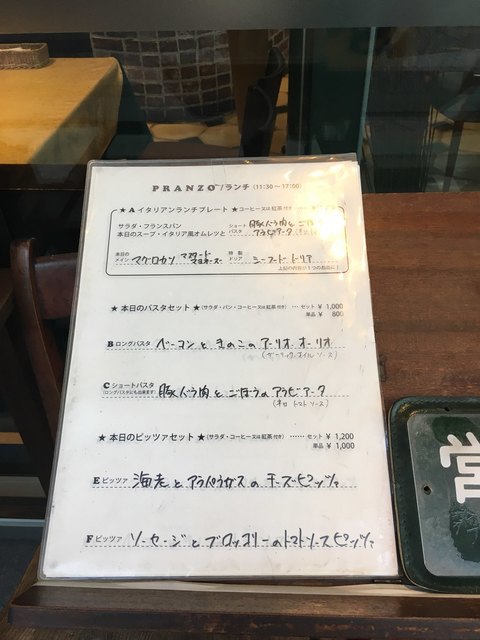 PRANZO /ランチ (11:30～17:00)
★ A イタリアンランチプレート ★コーヒー又は紅茶
サラダ・フランスパン
本日のスープ・イタリア風オムレツと
ショート
パスタ
豚バラ肉と
アラビアータ
本日の
メイン
マグロカツ マスタード
マヨネーズ
特製
ドリア
シーフードドリア
上記の内容が1つのお皿に!
★ 本日のパスタセット ★ (サラダ・パン・コーヒー又は紅茶 付き) ⋯⋯ セット ¥ 1,000
単品 ¥ 800
B ロングパスタ ベーコンときのこのアーリオ オーリオ
(ガーリックオイルソース)
C ショートパスタ
(ロングパスタにも出来ます)
豚バラ肉とごぼうのアラビアータ
(辛口トマトソース)
★ 本日のピッツァセット ★ (サラダ・コーヒー又は紅茶 付き) ⋯⋯ セット ¥ 1,200
単品 ¥ 1,000
E ピッツァ 海老とアスパラガスのチーズピッツァ
F ピッツァ ソーセージとブロッコリーのトマトソースピッツァ
営